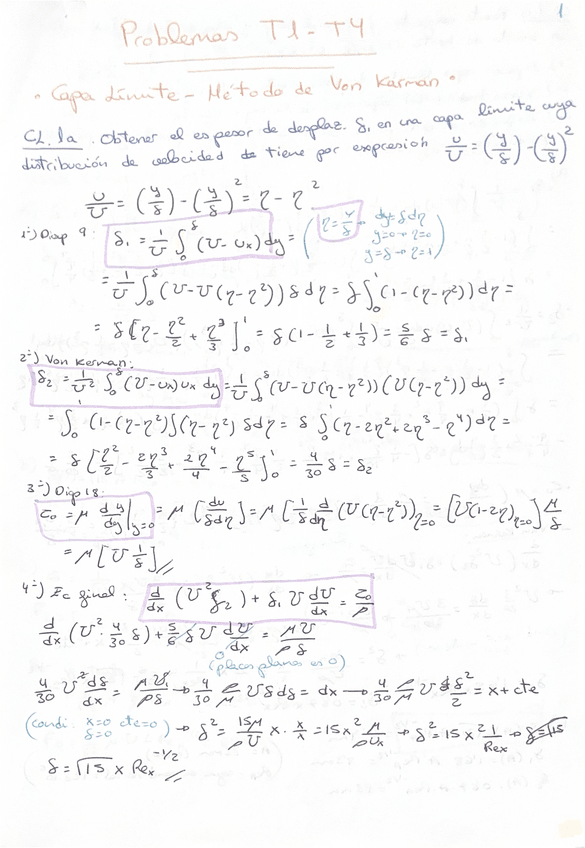 1
Problemas T1-T4
• Capa Límite - Método de Von Kárman •
CL. 1a. Obtener el espesor de desplaz. δ₁ en una capa límite cuya
distribución de velocidad se tiene por expresión u/U = (y/δ) - (y/δ)²
u/U = (y/δ) - (y/δ)² = η - η²
1º) Diap 9: δ₁ = 1/U ∫₀^δ (U - ux) dy = (η = y/δ → dy = δdη
y=0 → η=0
y=δ → η=1)
= 1/U ∫₀^δ (U - U(η - η²)) δ dη = δ ∫₀¹ (1 - (η - η²)) dη =
= δ [η - η²/2 + η³/3]₀¹ = δ (1 - 1/2 + 1/3) = 5/6 δ = δ₁
2º) Von Karman:
δ₂ = 1/U² ∫₀^δ (U - ux) ux dy = 1/U ∫₀^δ (U - U(η - η²)) (U(η - η²)) dy =
= ∫₀¹ (1 - (η - η²)) (η - η²) δdη = δ ∫₀¹ (η - 2η² + 2η³ - η⁴) dη =
= δ [η²/2 - 2η³/3 + 2η⁴/4 - η⁵/5]₀¹ = 4/30 δ = δ₂
3º) Diap 18:
τ₀ = μ du/dy|y=0 = μ [du/δdη] = μ [1/δ d/dη (U(η - η²))η=0 = [U(1 - 2η)η=0] μ/δ
= μ [U 1/δ] //
4º) Ec final: d/dx (U² δ₂) + δ₁ U dU/dx = τ₀/ρ
d/dx (U² · 4/30 δ) + 5/6 δ U dU/dx = μU/ρδ
0 (placas planas es 0)
4/30 U² dδ/dx = μU/ρδ → 4/30 ρ/μ U δ dδ = dx → 4/30 ρ/μ U δ²/2 = x + cte
(condi: x=0 cte=0
δ=0) → δ² = 15μ/ρU x · x/x = 15x² μ/ρUx → δ² = 15x² 1/Rex →
δ = √15 x Rex^-1/2 //